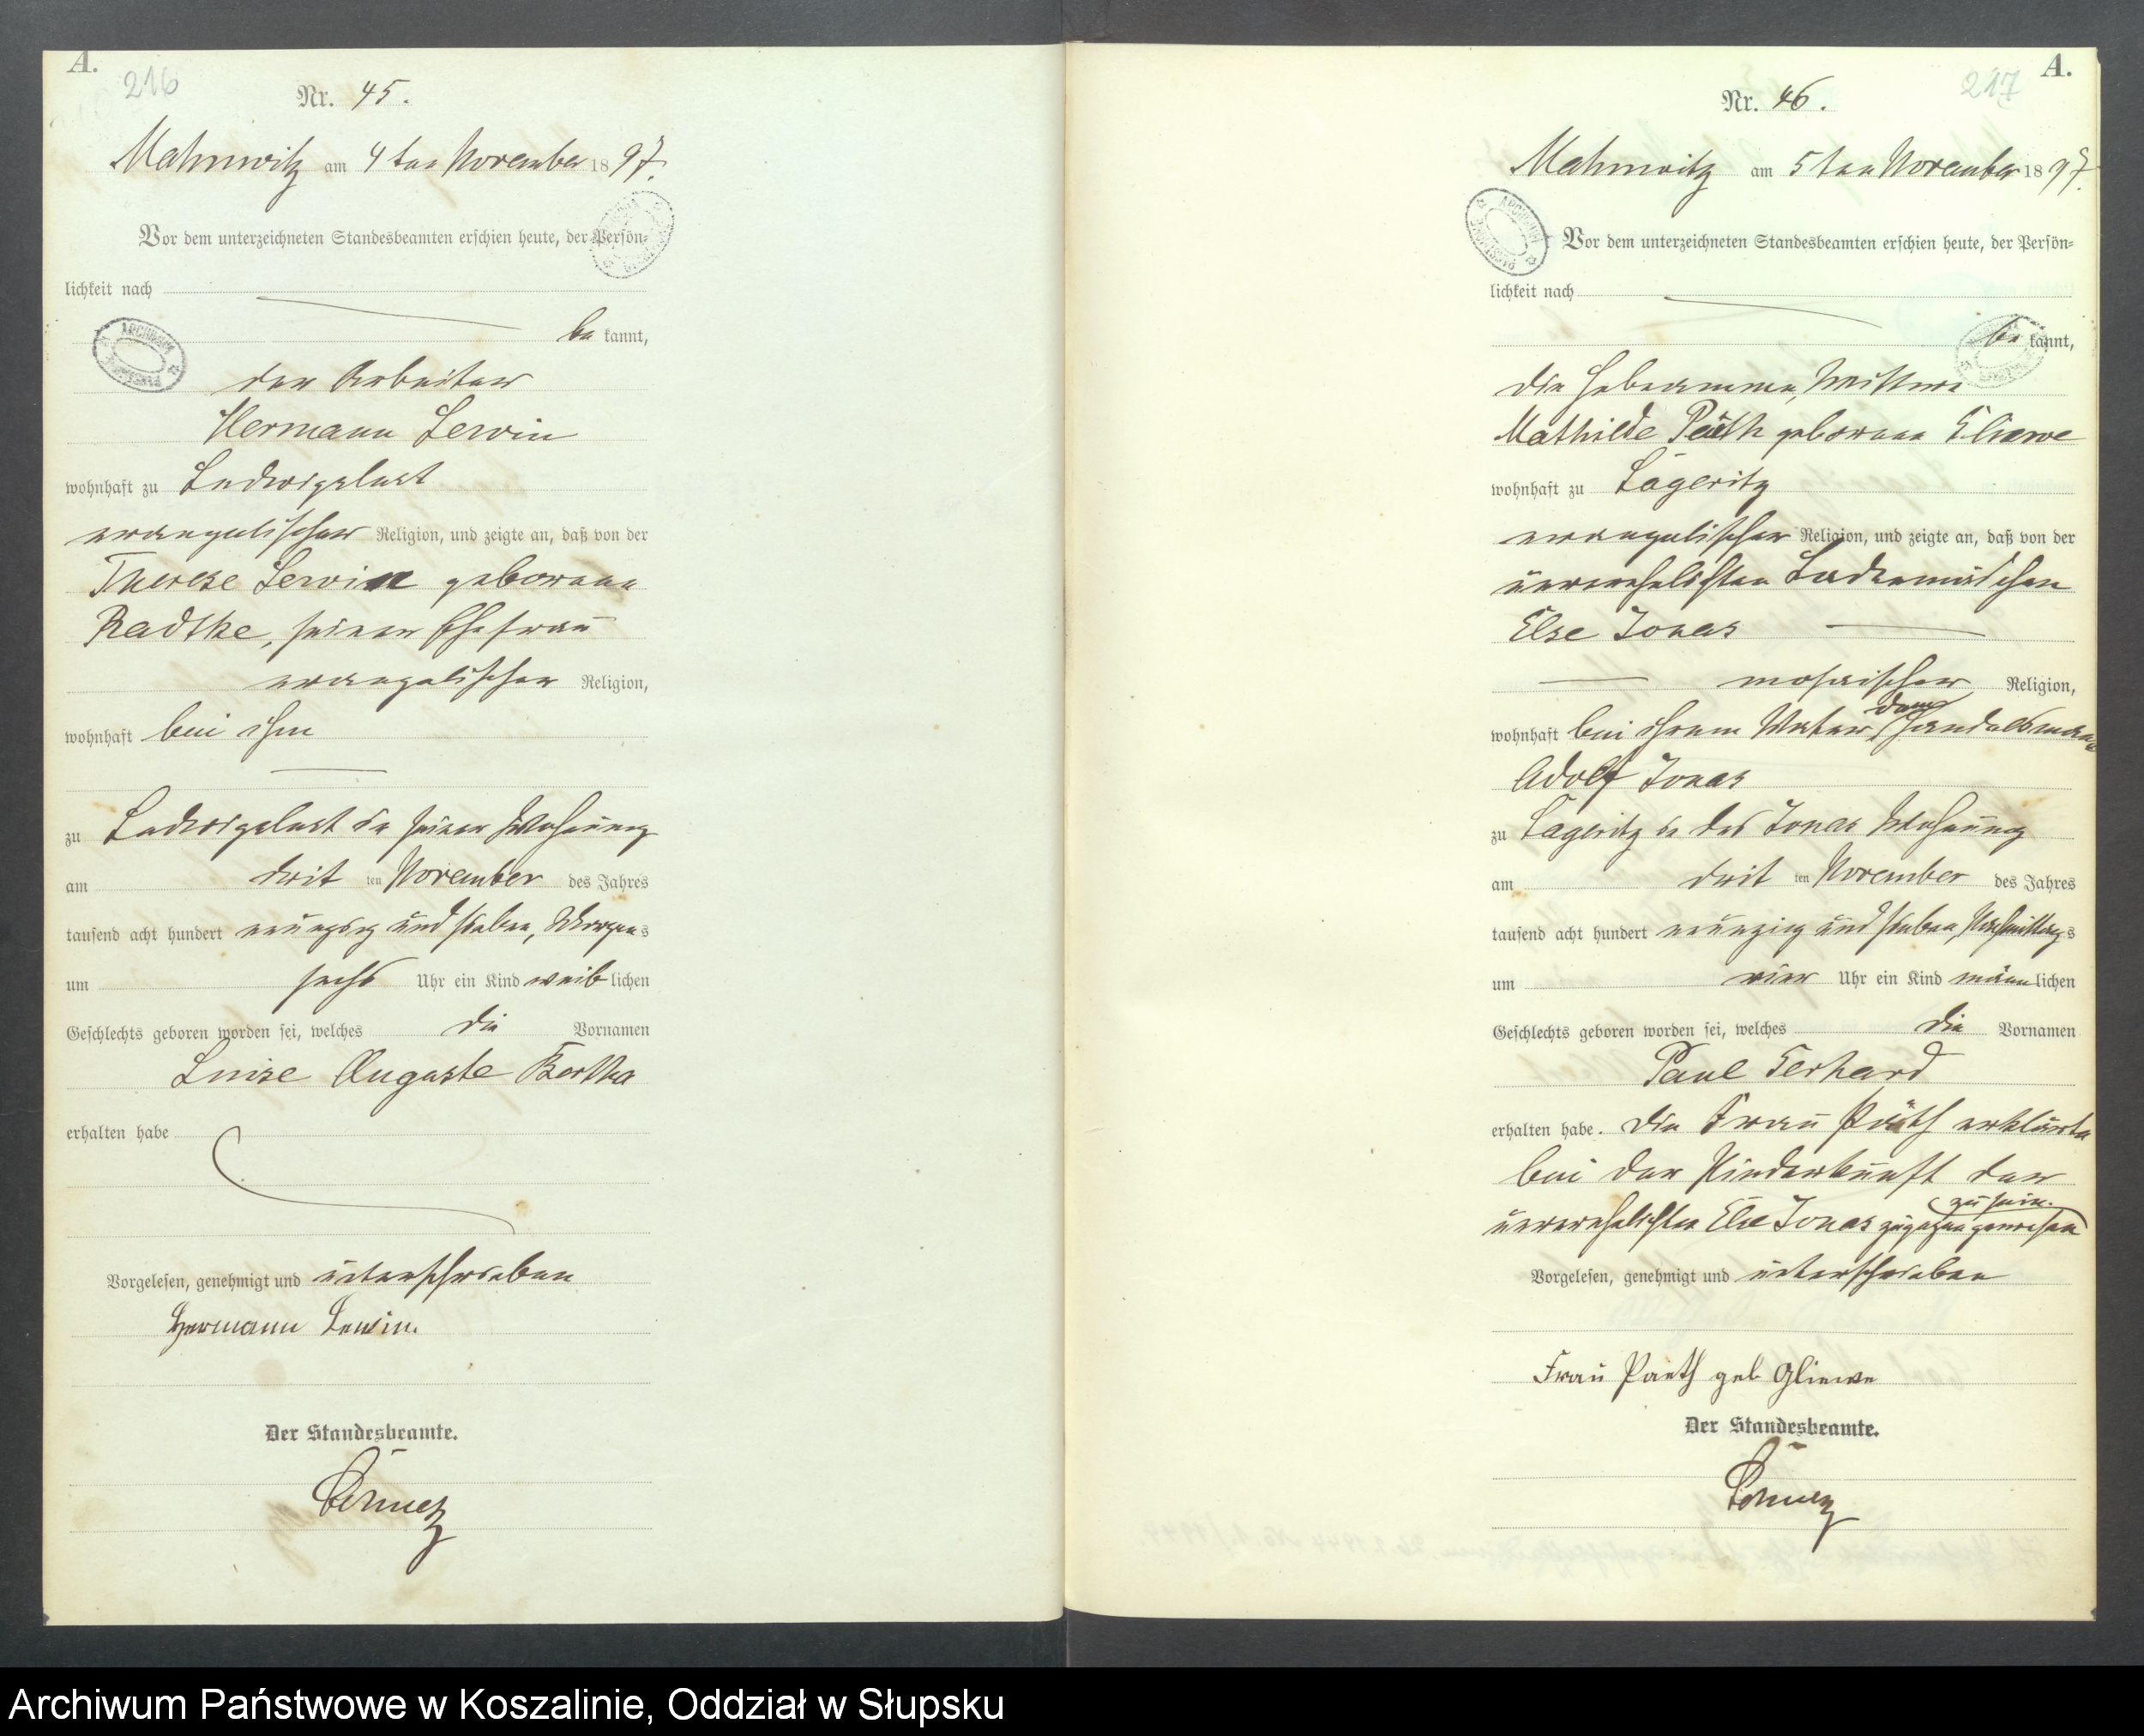 A.
216
Nr. 45.
Mahnwitz am 4ten November 1897.
Vor dem unterzeichneten Standesbeamten erschien heute, der Persön-
lichkeit nach
be kannt,
der Arbeiter
Hermann Lewin
wohnhaft zu Ludwigslust
evangelischer Religion, und zeigte an, daß von der
Therese Lewin geborene
Radtke, seiner Ehefrau
evangelischer Religion,
wohnhaft bei ihm
zu Ludwigslust in seiner Wohnung
am dritten November des Jahres
tausend acht hundert neunzig und sieben, Morgens
um sechs Uhr ein Kind weiblichen
Geschlechts geboren worden sei, welches die Vornamen
Luise Auguste Bertha
erhalten habe
Vorgelesen, genehmigt und unterschrieben
Hermann Lewin.
Der Standesbeamte.
A.
217
Nr. 46.
Mahnwitz am 5ten November 1897.
Vor dem unterzeichneten Standesbeamten erschien heute, der Persön-
lichkeit nach
be kannt,
die Hebeamme, Wittwe
Mathilde Päth geborene Gliewe
wohnhaft zu Lägeritz
evangelischer Religion, und zeigte an, daß von der
unverehelichten Ladenmädchen
Else Jonas
mosaischer Religion,
wohnhaft bei ihrem Vater, dem Handelsmann
Adolf Jonas
zu Lägeritz in des Jonas Wohnung
am dritten November des Jahres
tausend acht hundert neunzig und sieben, Nachmittags
um vier Uhr ein Kind männlichen
Geschlechts geboren worden sei, welches die Vornamen
Paul Gerhard
erhalten habe. Die Frau Päth erklärte
bei der Niederkunft der
unverehelichten Else Jonas zugegen gewesen
zu sein.
Vorgelesen, genehmigt und unterschrieben
Frau Paeth geb Gliewe
Der Standesbeamte.
Archiwum Państwowe w Koszalinie, Oddział w Słupsku